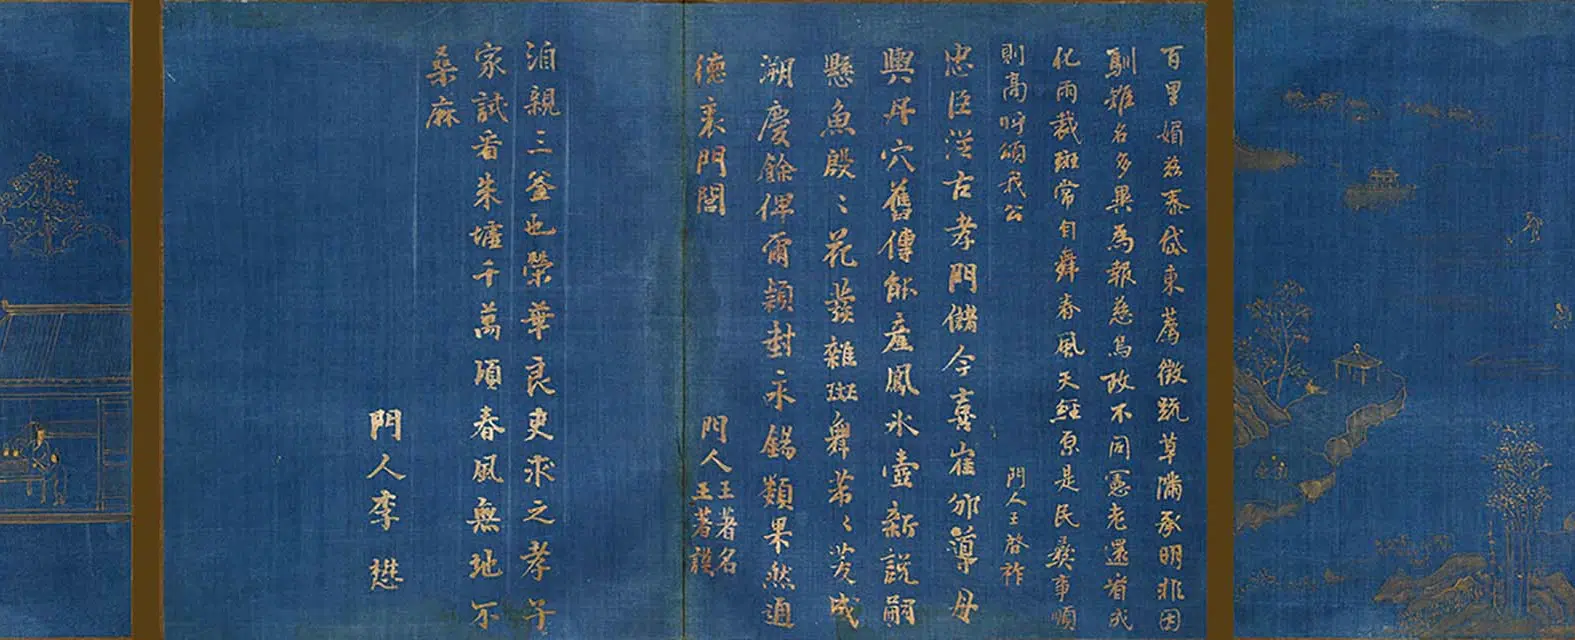 百里媚茲泰岱東薦微疏草滿承明非因
馴雉名多異為報慈烏政不同憲老還省成
化雨裁斑常自舞春風天經原是民彝事順
則高呼頌我公
門人王啓祚
忠臣從古孝門儲今喜崔邠導母
輿丹穴舊傳能產鳳冰壺新說嗣
懸魚殷殷花發雜斑舞芾芾成
溯慶餘俾爾穎封永錫類果然通
德表門閭
門人王著名
王著謨
洎親三釜也榮華良吏求之孝子
家試看朱墟千萬頃春風無地不
桑麻
門人李懋